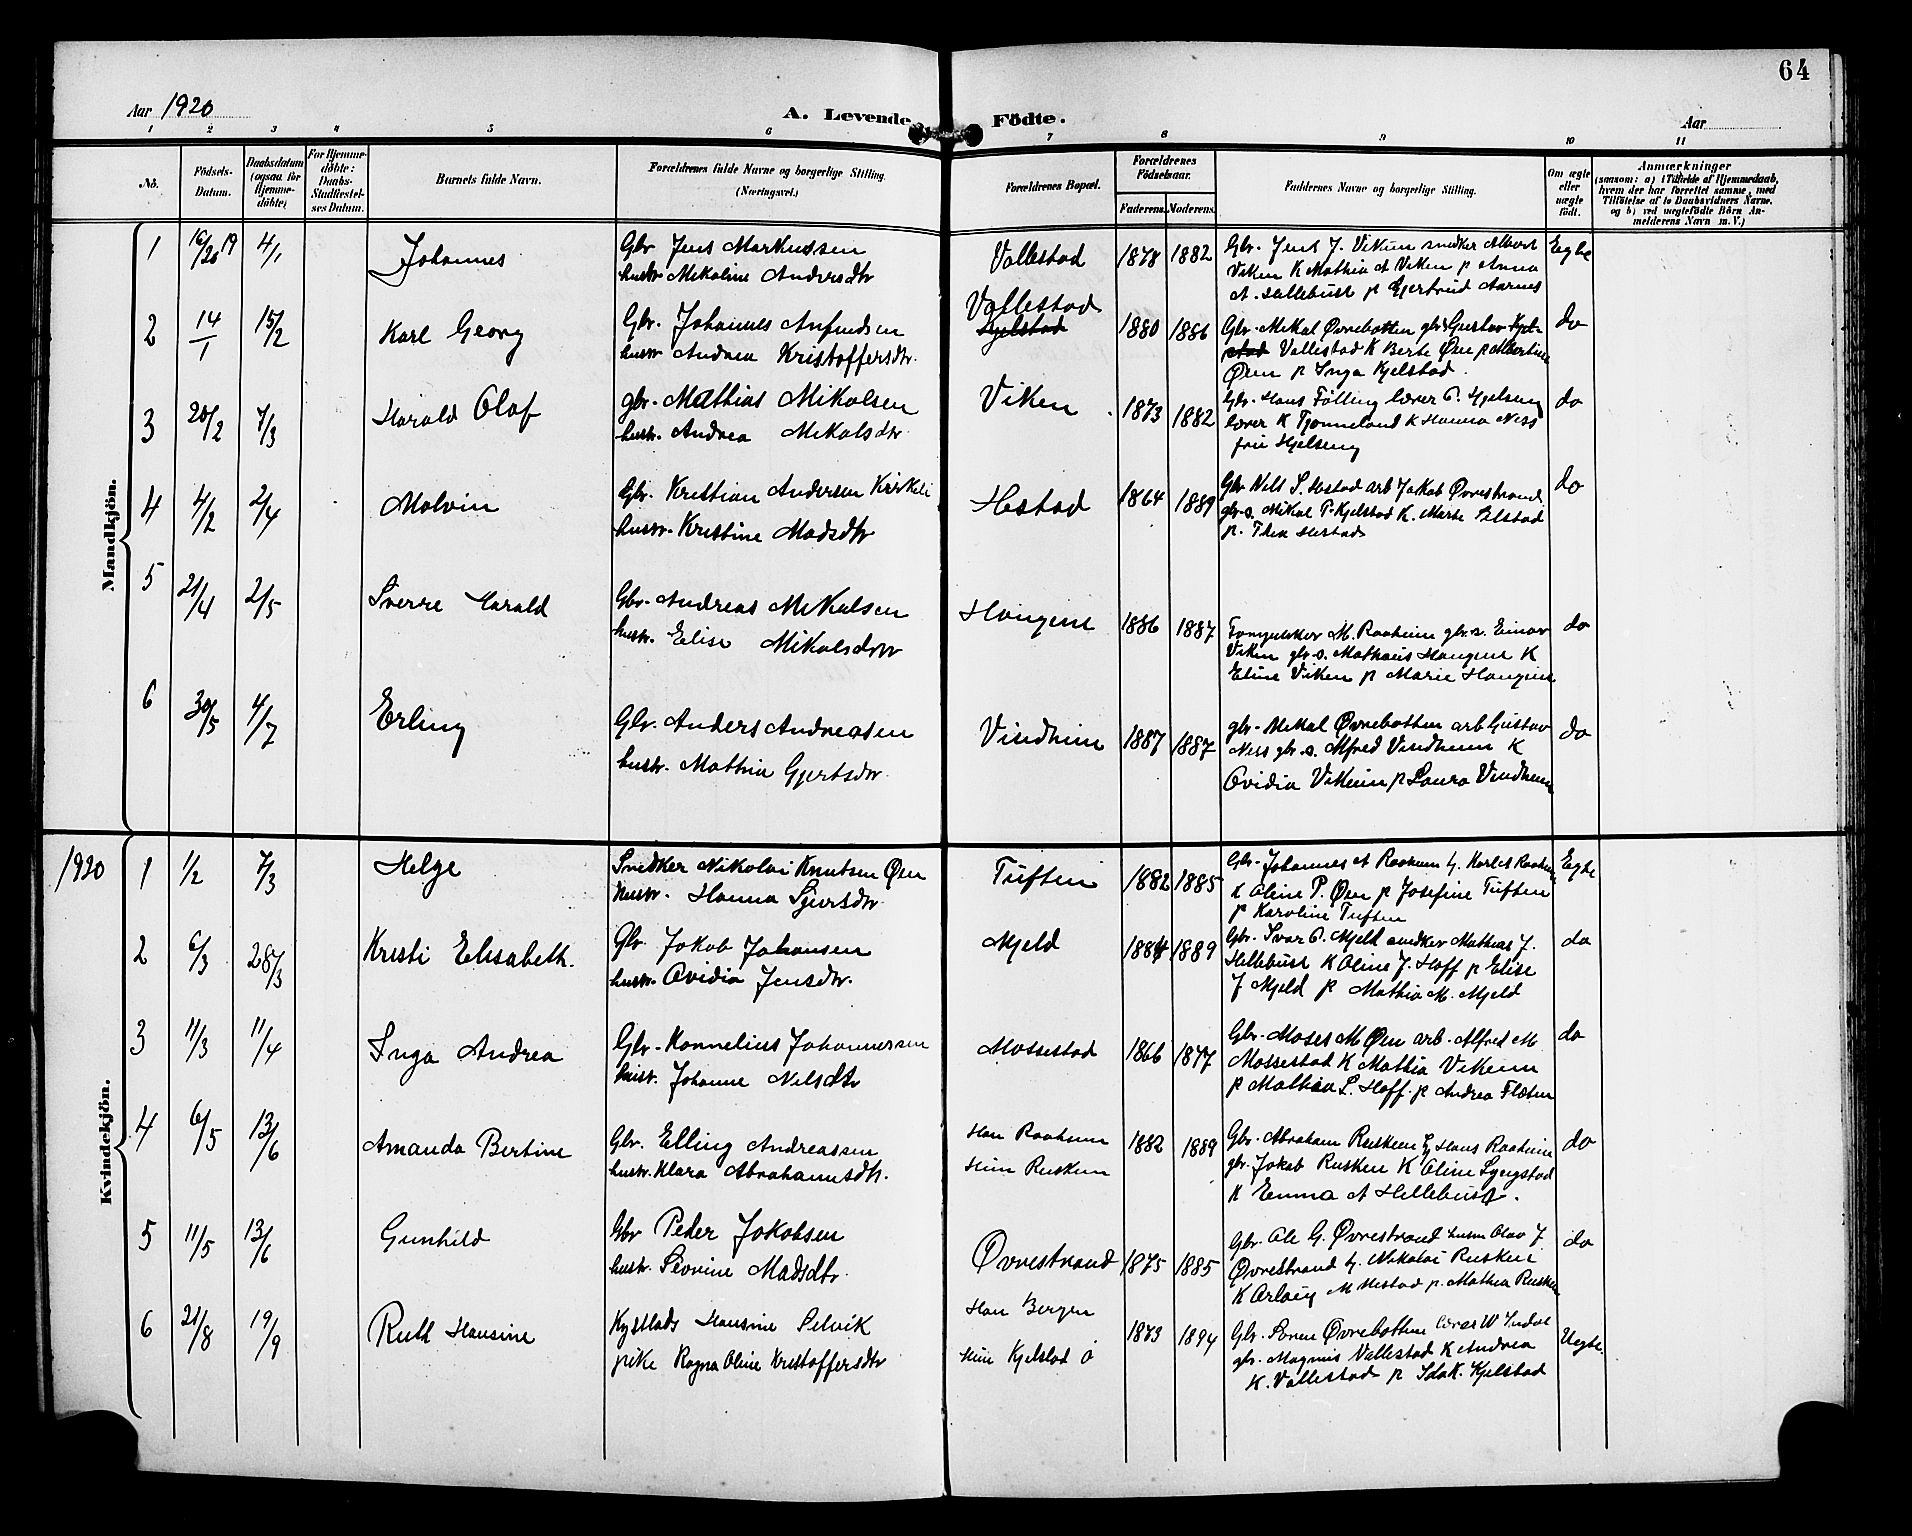 64
Aar 1920
A. Levende Födte.
Aar
1 2 3 4 5 6 7 8 9 10 11
No.
Födsels-Datum.
Daabsdatum (ogsaa for Hjemme-döbte)
For Hjemme-döbte: Daabs-Stadfæstel-ses Datum.
Barnets fulde Navn.
Forældrenes fulde Navne og borgerlige Stilling.
(Næringsvei.)
Forældrenes Bopæl.
Forældrenes Födselsaar.
Faderens. Moderens.
Faddernes Navne og borgerlige Stilling.
Om ægte eller uægte födt.
Anmærkninger
(saasom: a) i Tilfælde af Hjemmedaab,
hvem der har forrettet samme, med
Tilföielse af to Daabsvidners Navne,
og b) ved uægtefödte Börn An-
melderens Navn m. V.)
Mandkjön.
1 16/20 19 4/1 Johannes
Gbr Jens Markussen
hustr Mikaline Andersdtr
Vallestad 1878 1882
Gbr. Jens J. Vikum snedker Albert
Viken K Mathia A Viken p Anna
A. Hellebust p Gjertrud Aarnes
Egte
2 14/1 15/2 Karl Georg
Gbr. Johannes Anfindsen
hustr Andrea Kristoffersdtr.
Vallestad
Kjelstad
1880 1886
Gbr. Mikal Øvrebotten gbr Gustav Kjel-
stad Vallestad K Berte Øen p Albertine
Øren p Inga Kjelstad.
do
3 20/2 7/3 Harald Olaf
gbr. Mathias Mikalsen
hustr. Andrea Mikalsdtr
Viken 1873 1882
Gbr. Hans Fölling lærer P. Hjelseng
lærer K Tjønneland K Hanna Ness
fru Hjelseng
do
4 4/2 2/4 Malvin
Gbr. Kristian Andersen Kirkeli
hustr. Kristine Madsdtr
Hestad 1864 1889
Gbr Nils S. Hestad arb Jakob Øvrestrand
gbr.s. Mikal P. Kjelstad K. Marte
p. Thea Hestad
do
5 21/4 2/5 Sverre Harald
Gbr. Andreas Mikalsen
hustr. Elise Mikalsdtr
Haugene 1886 1887
M. Raaheim gbr.s. Einar
Viken gbr.s. Mathias Haugene K
Eline Viken p Marie Haugene
do
6 30/5 4/7 Erling
Gbr. Anders Andreasen
hustr. Mathia Gjertsdtr
Vindheim 1887 1887
gbr. Mikal Øvrebotten arb Gustav
Ness gbr.s. Alfred Vindheim K
Ovidia Vikum p Laura Vindheim
do
Kvindekjön.
1920
1 1/2 7/3 Helge
Snedker Nikolai Knutsen Øen
Hustr. Hanna Sjursdtr
Tuften 1882 1885
Gbr. Johannes A Raaheim
K Oline P. Øen p Josefine Tuften
p Karoline Tuften
Egte
2 6/3 28/3 Kristi Elisabeth.
Gbr. Jakob Johansen
hustr. Ovidia Jensdtr.
Mjeld 1884 1889
Gbr. Ivar P. Mjeld snedker Mathias J.
Hellebust K Oline J. Hoff p Elise
J Mjeld p Mathia M. Mjeld
do
3 11/3 11/4 Inga Andrea
Gbr. Kornelius Johannessen
hust. Johanne Nilsdtr
Mossestad 1866 1877
Gbr. Moses M Øen arb. Alfred M
Mossestad K Mathia Vikum
p Mathea S. Hoff. p Andrea Flaten
do
4 6/5 13/6 Amanda Bertine
Gbr. Elling Andreassen
hustr. Klara Abrahamsdtr.
Han Raaheim
Hun Rusken
1882 1889
Gbr. Abraham Rusken Hans Raaheim
gbr. Jakob Rusken K Oline Sygstad
K Emma A Hellebust.
do
5 11/5 13/6 Gunhild
Gbr Peder Jakobsen
hustr. Severine Madsdtr.
Øvrestrand 1875 1885
Gbr. Ole G. Øvrestrand Olav J
Øvrestrand Nikolai Rusken
K M Hestad p. Mathea Rusken
do
6 21/8 19/9 Ruth Hansine
Hansine Selvik
pike Ragna Oline Kristoffersdtr
Han Bergen
Hun Kjelstad Ö
1873 1894
Gbr. Søren Øvrebotten
gbr. Magnus Vallestad K Andrea
K. Vallestad p Ida K. Kjelstad
Uegte.